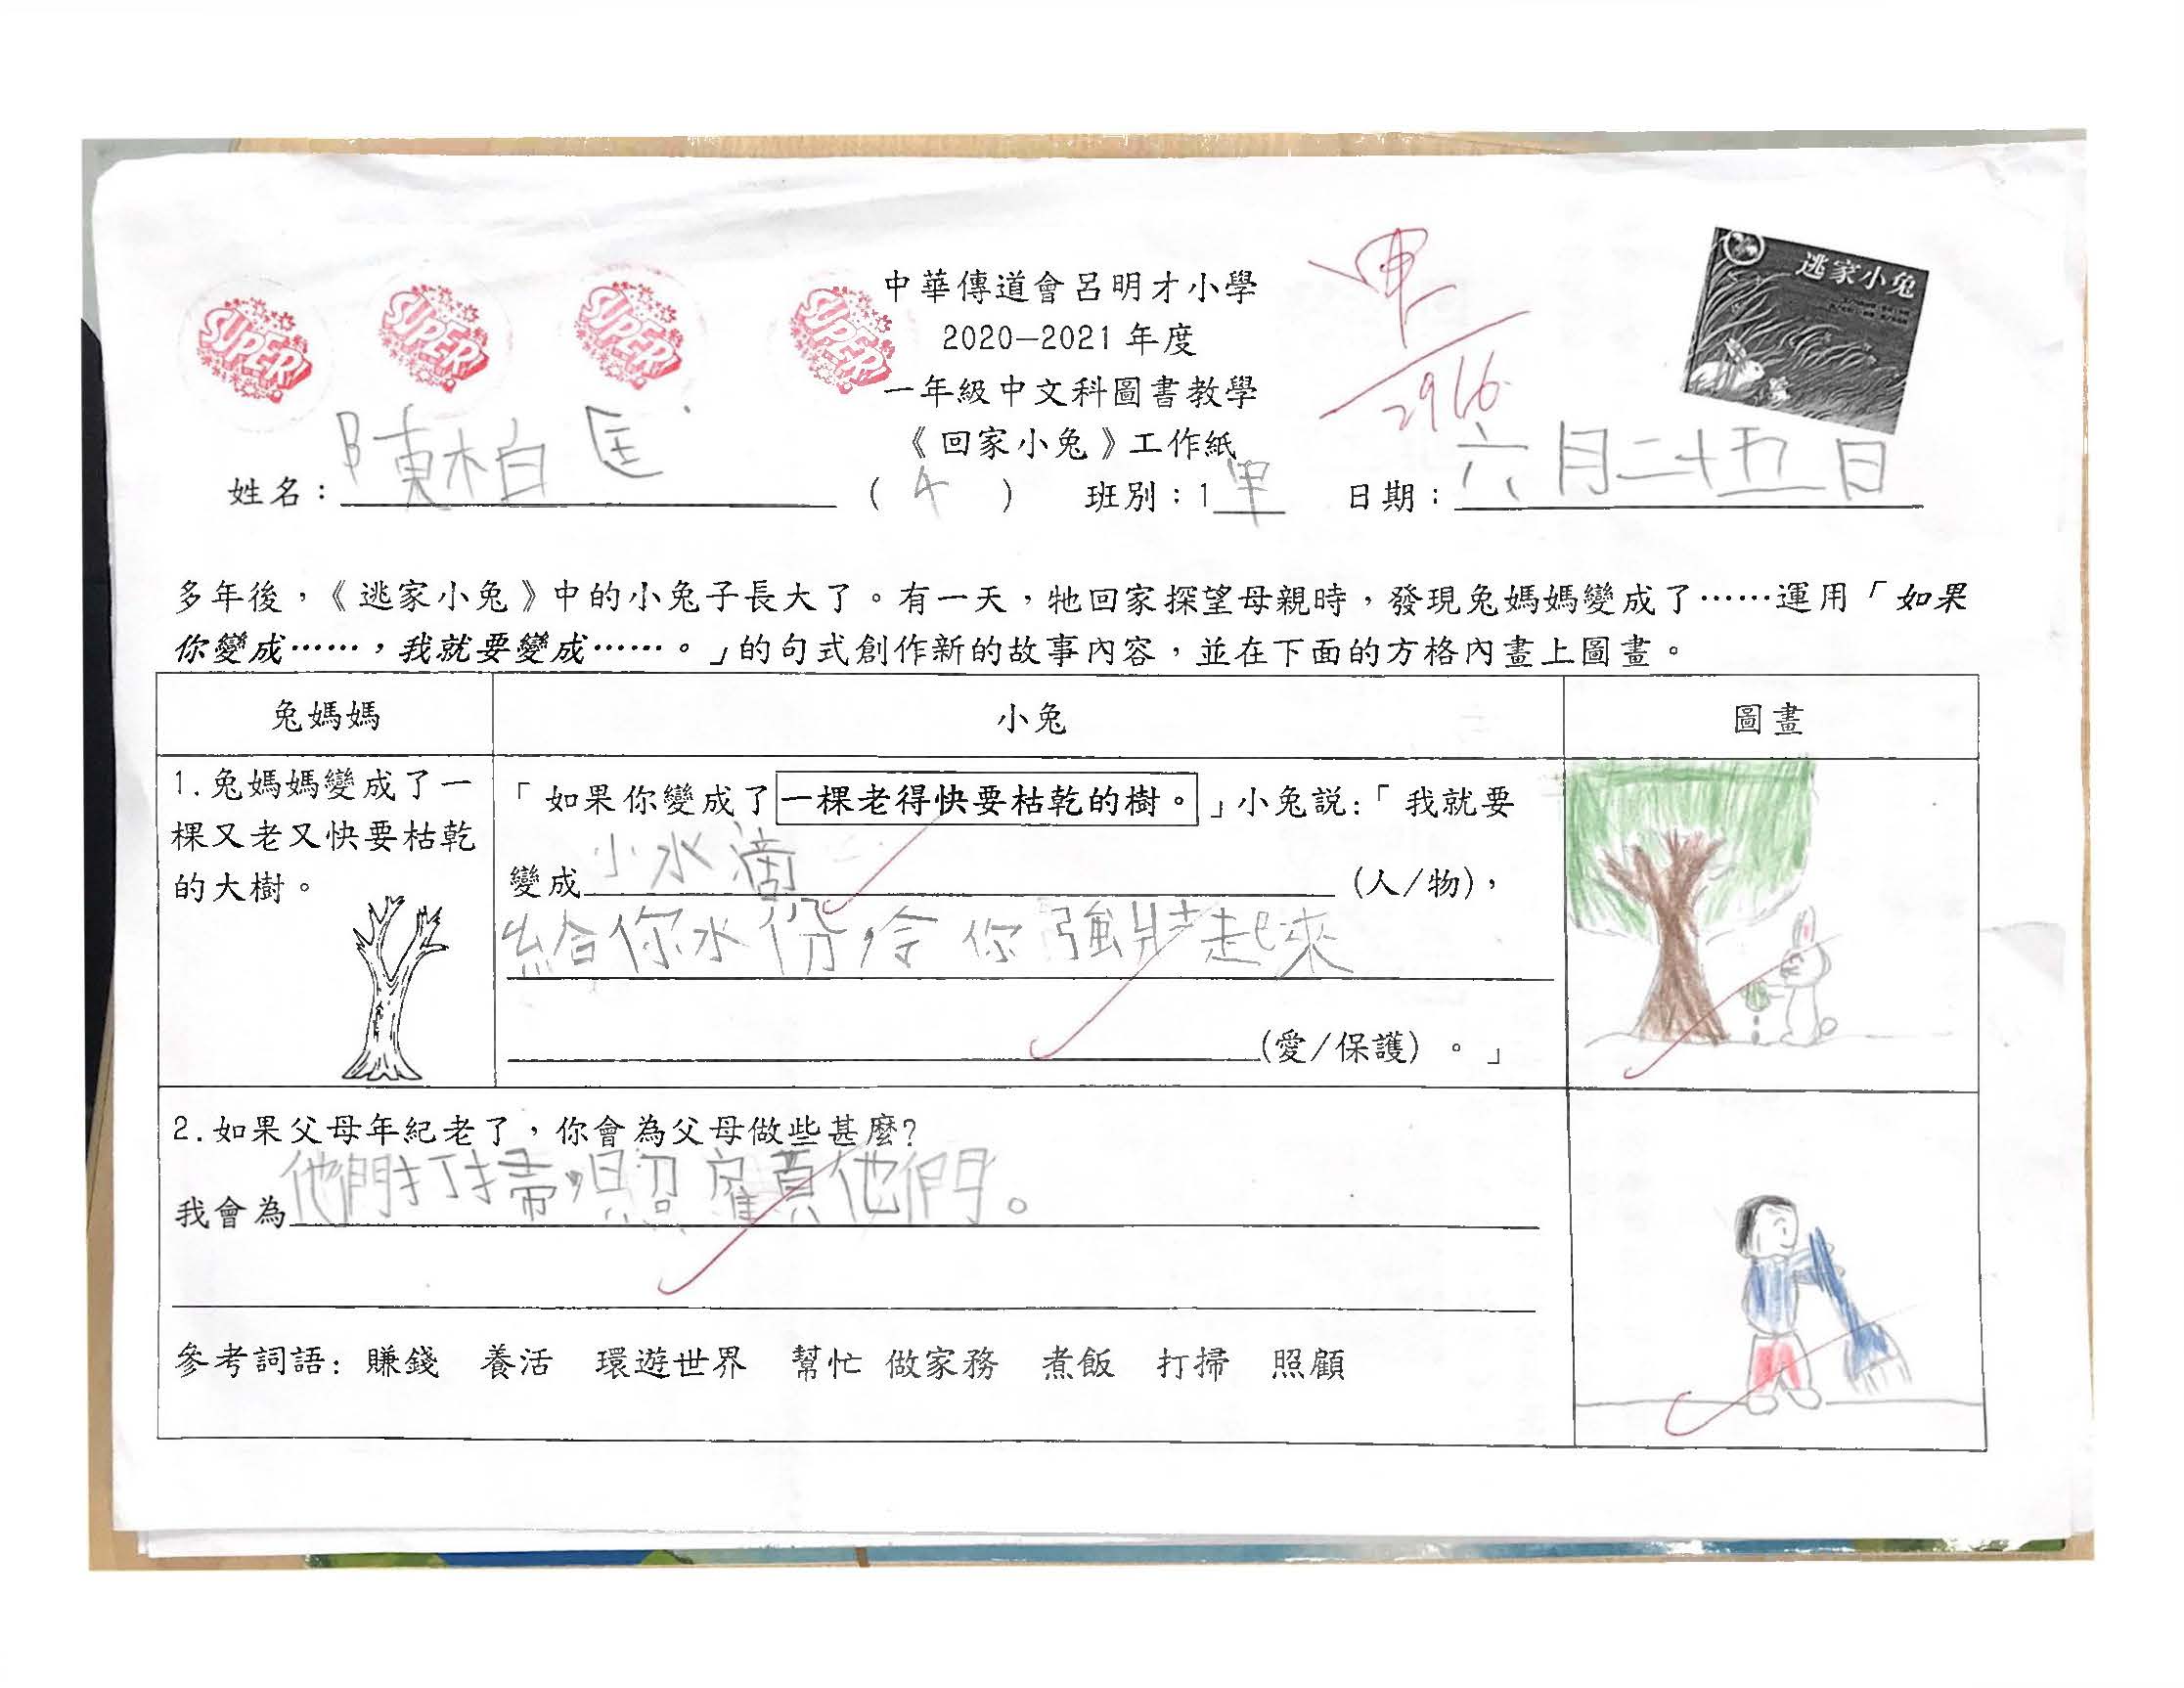 SUPER!
SUPER!
SUPER!
SUPER!
中華傳道會呂明才小學
2020-2021 年度
一年級中文科圖書教學
《回家小兔》工作紙
甲
29/6
逃家小兔
姓名：陳柏匡 ( 4 ) 班別：1甲 日期：六月二十五日
多年後，《逃家小兔》中的小兔子長大了。有一天，牠回家探望母親時，發現兔媽媽變成了……運用「如果
你變成……，我就要變成……。」的句式創作新的故事內容，並在下面的方格內畫上圖畫。
兔媽媽 小兔 圖畫
1.兔媽媽變成了一
棵又老又快要枯乾
的大樹。
「如果你變成了一棵老得快要枯乾的樹。」小兔説:「我就要
變成小水滴(人/物)，
給你水份，令你強壯起來
(愛/保護)。」
2.如果父母年紀老了，你會為父母做些甚麼?
我會為他們打掃，照顧他們。
參考詞語: 賺錢 養活 環遊世界 幫忙 做家務 煮飯 打掃 照顧